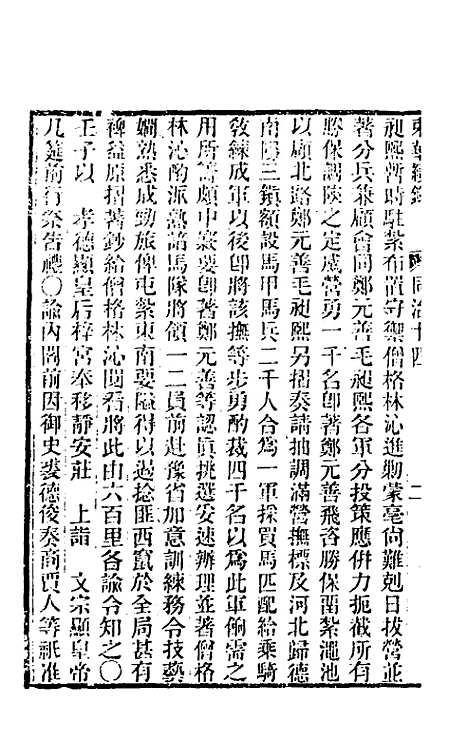 東華續錄　同治十四　二
昶熙暫時駐紮布置守禦僧格林沁進剿蒙亳尙難剋日拔營並
著分兵兼顧會同鄭元善毛昶熙各軍分投策應倂力扼截所有
勝保調陝之定威營勇一千名卽著鄭元善飛咨勝保留紮澠池
以顧北路鄭元善毛昶熙另摺奏請抽調滿營撫標及河北歸德
南陽三鎮額設馬甲馬兵二千人合爲一軍採買馬匹配給乘騎
敎練成軍以後卽將該撫等步勇酌裁四千名以爲此軍餉需之
用所籌頗中窾要卽著鄭元善等認眞挑選妥速辦理並著僧格
林沁南派熟諳馬隊將領一二員前赴豫省加意訓練務令技藝
嫺熟悉成勁旅俾屯紮東南要隘得以遏捻匪西竄於全局甚有
裨益原摺著鈔給僧格林沁閱看將此由六百里各諭令知之〇
壬子以　孝德顯皇后梓宮奉移靜安莊　上詣　文宗顯皇帝
几筵前行祭告禮〇諭內閣前因御史裘德俊奏商賈人等祗准